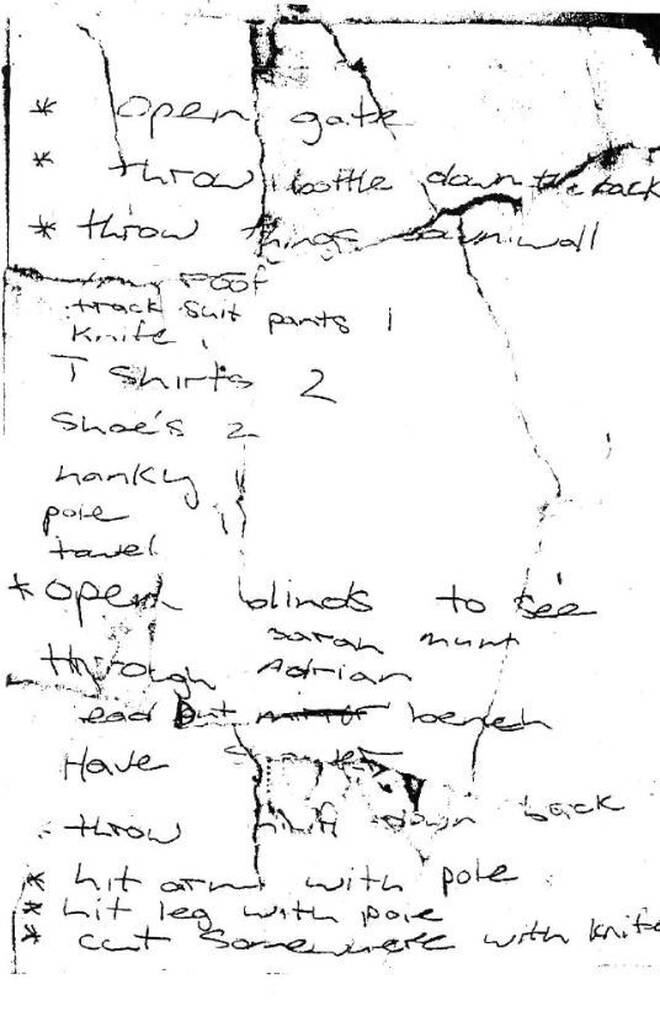 * open gate
* throw bottle down the back
* throw things down wall
roof
track suit pants 1
knife 1
T Shirts 2
Shoe's 2
hanky
pole
towel
* open blinds to see
sarah mum
through Adrian
bench
Have
throw knife down back
* hit arm with pole
* hit leg with pole
* cut Somewhere with knife